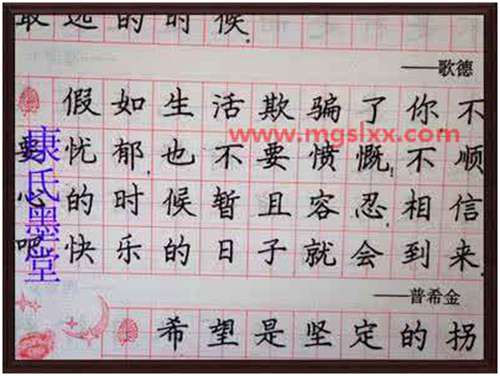 远的时候.
——歌德
假如生活欺骗了你不
www.mgslxx.com
要忧郁也不要愤慨.不顺
心的时候暂且容忍相信
吧快乐的日子就会到来.
康氏墨堂
——普希金
希望是坚定的拐